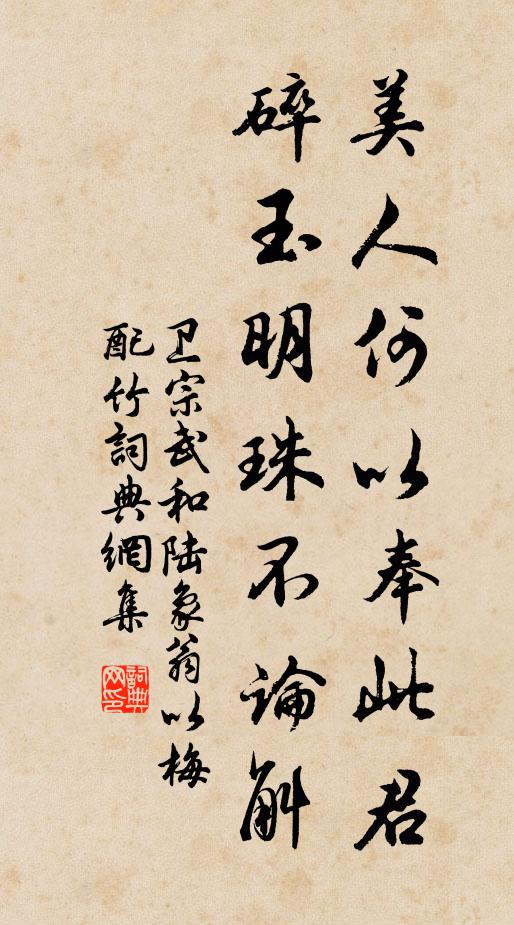 美人何以奉此君
碎玉明珠不論斛
卫宗武和陆象翁以梅
配竹詞典網集
詞典
网印